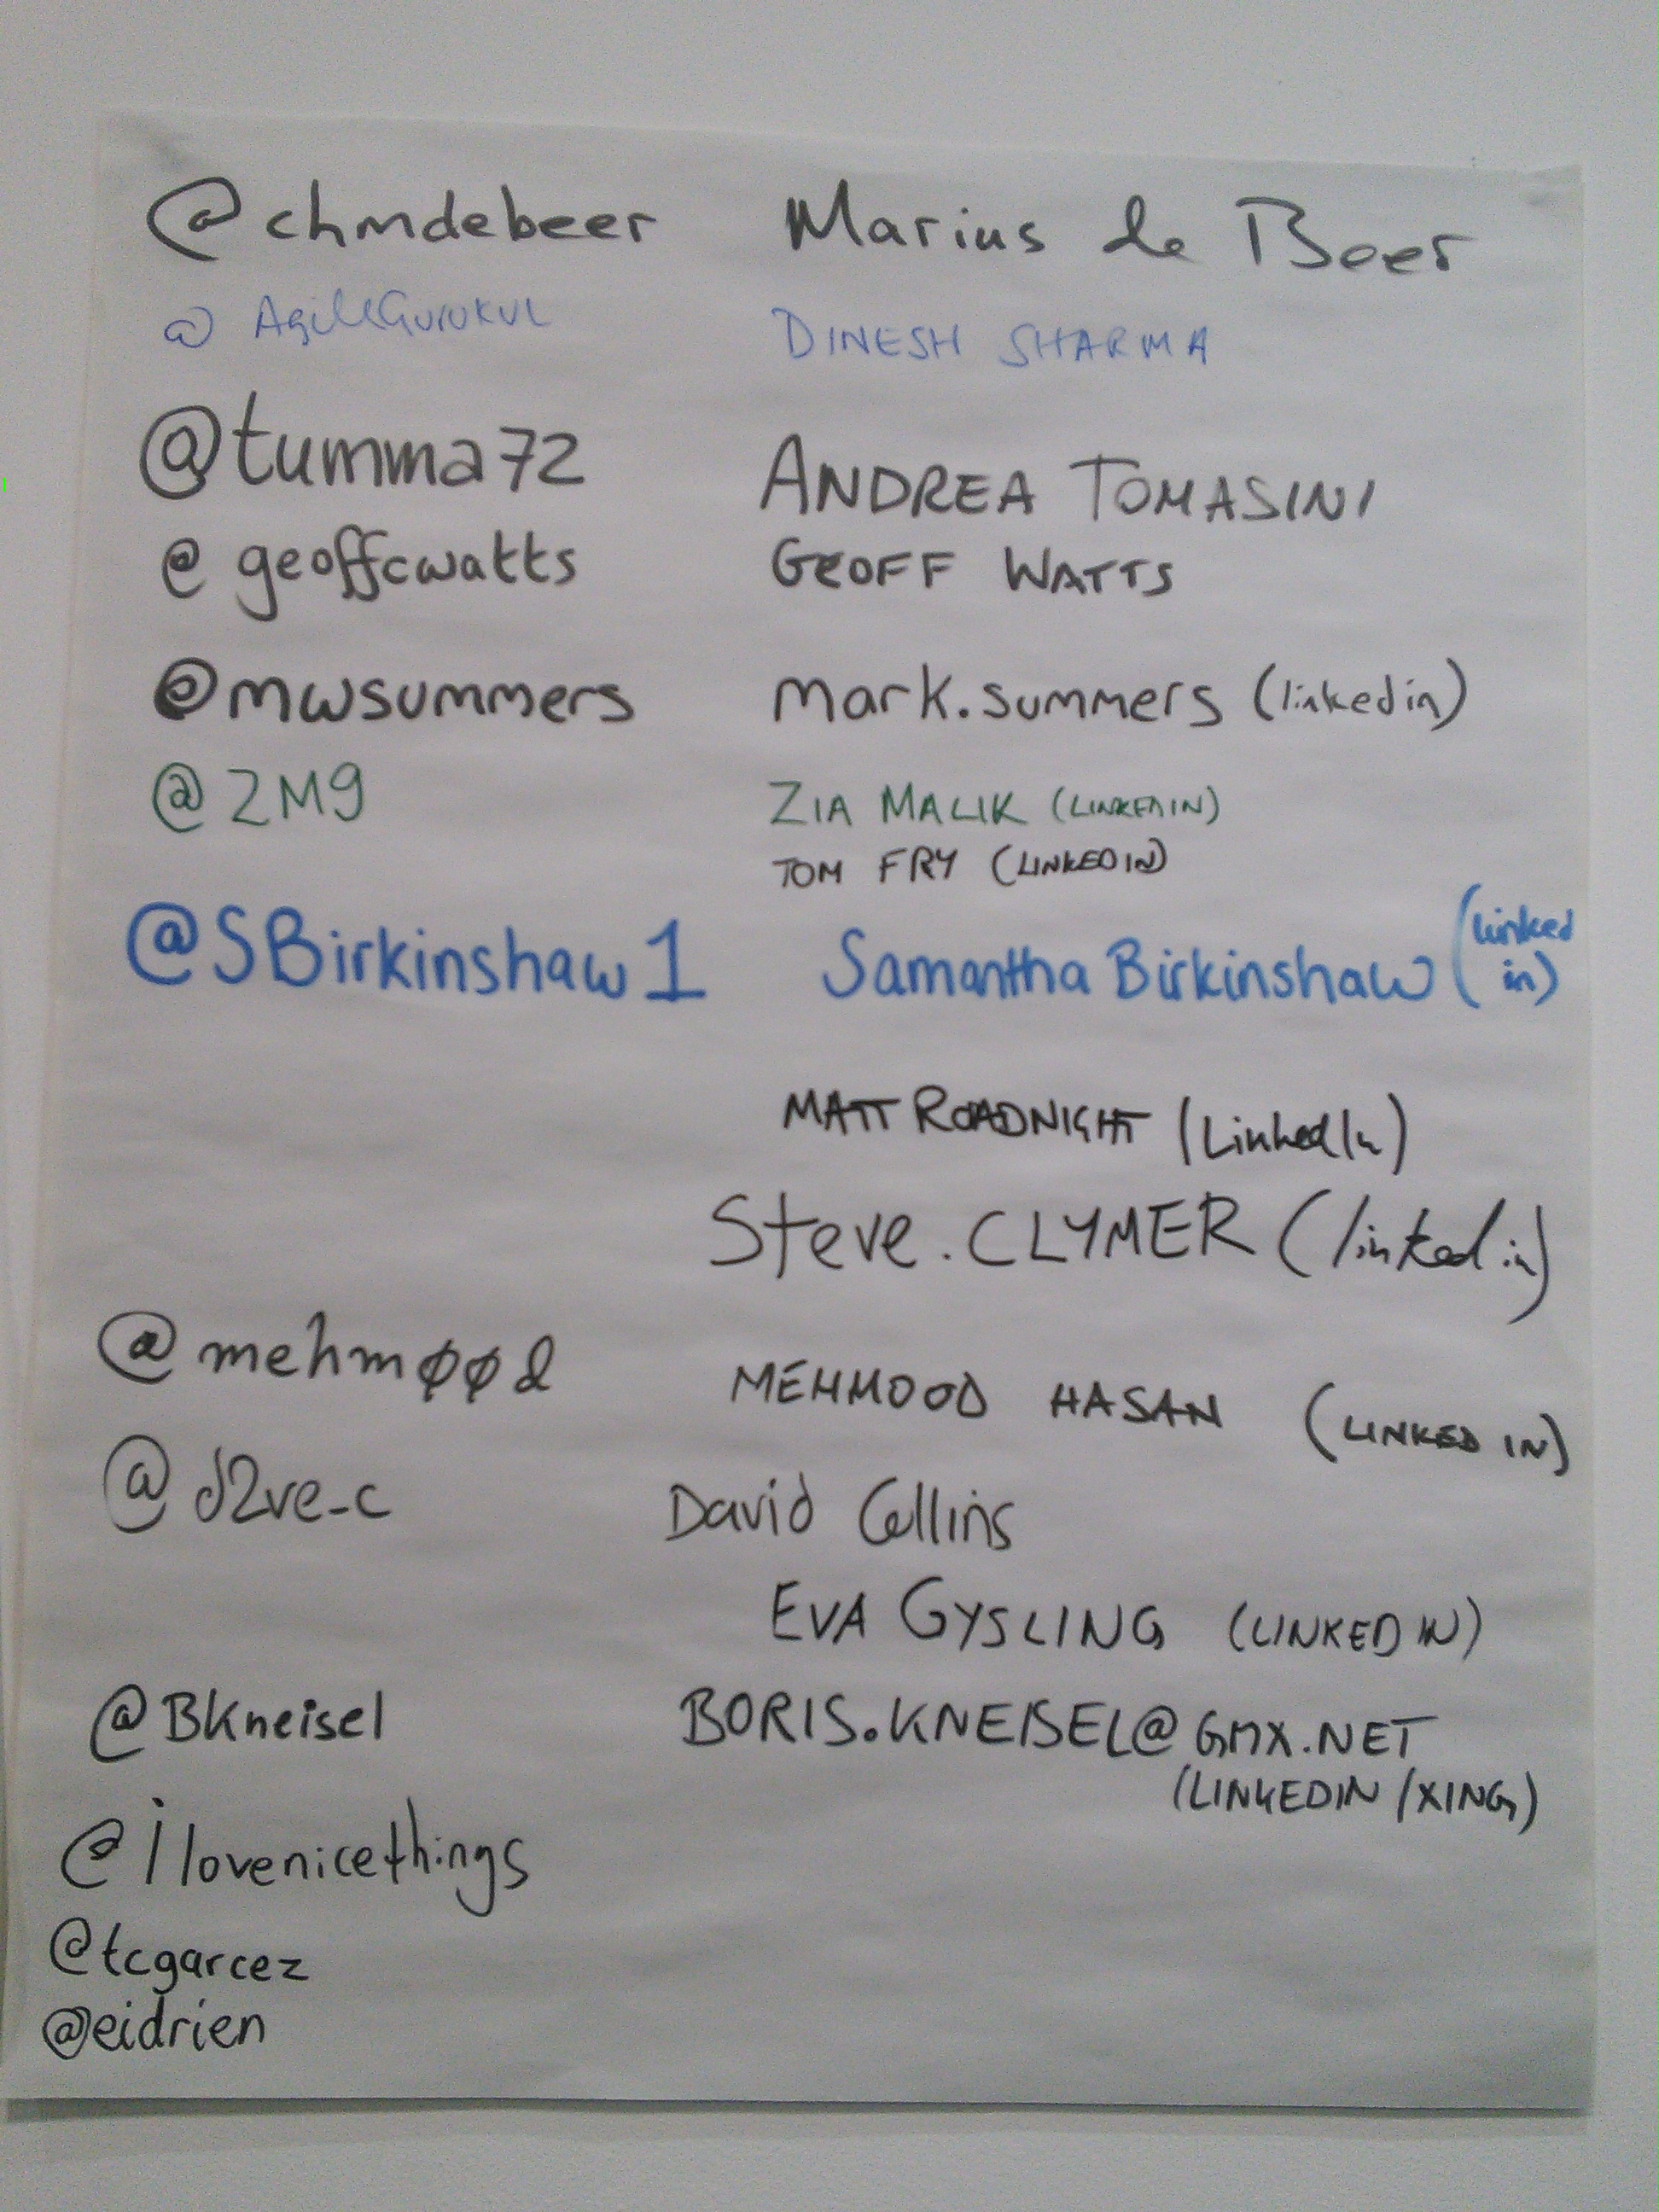 @chmdebeer Marius de Beer
@ AgileGurukul DINESH SHARMA
@tumma72 ANDREA TOMASINI
@ geoffcwatts GEOFF WATTS
@mwsummers mark.summers (linkedin)
@ZM9 ZIA MALIK (LINKEDIN)
TOM FRY (LINKEDIN)
@SBirkinshaw1 Samantha Birkinshaw (linked in)
MATT ROADNIGHT (LinkedIn)
Steve.CLYMER (linked in)
@mehmøød MEHMOOD HASAN (LINKED IN)
@d2ve_c David Collins
EVA GYSLING (LINKED IN)
@BKneisel BORIS.KNEISEL@GMX.NET
(LINKEDIN /XING)
@ilovenicethings
@tcgarcez
@eidrien